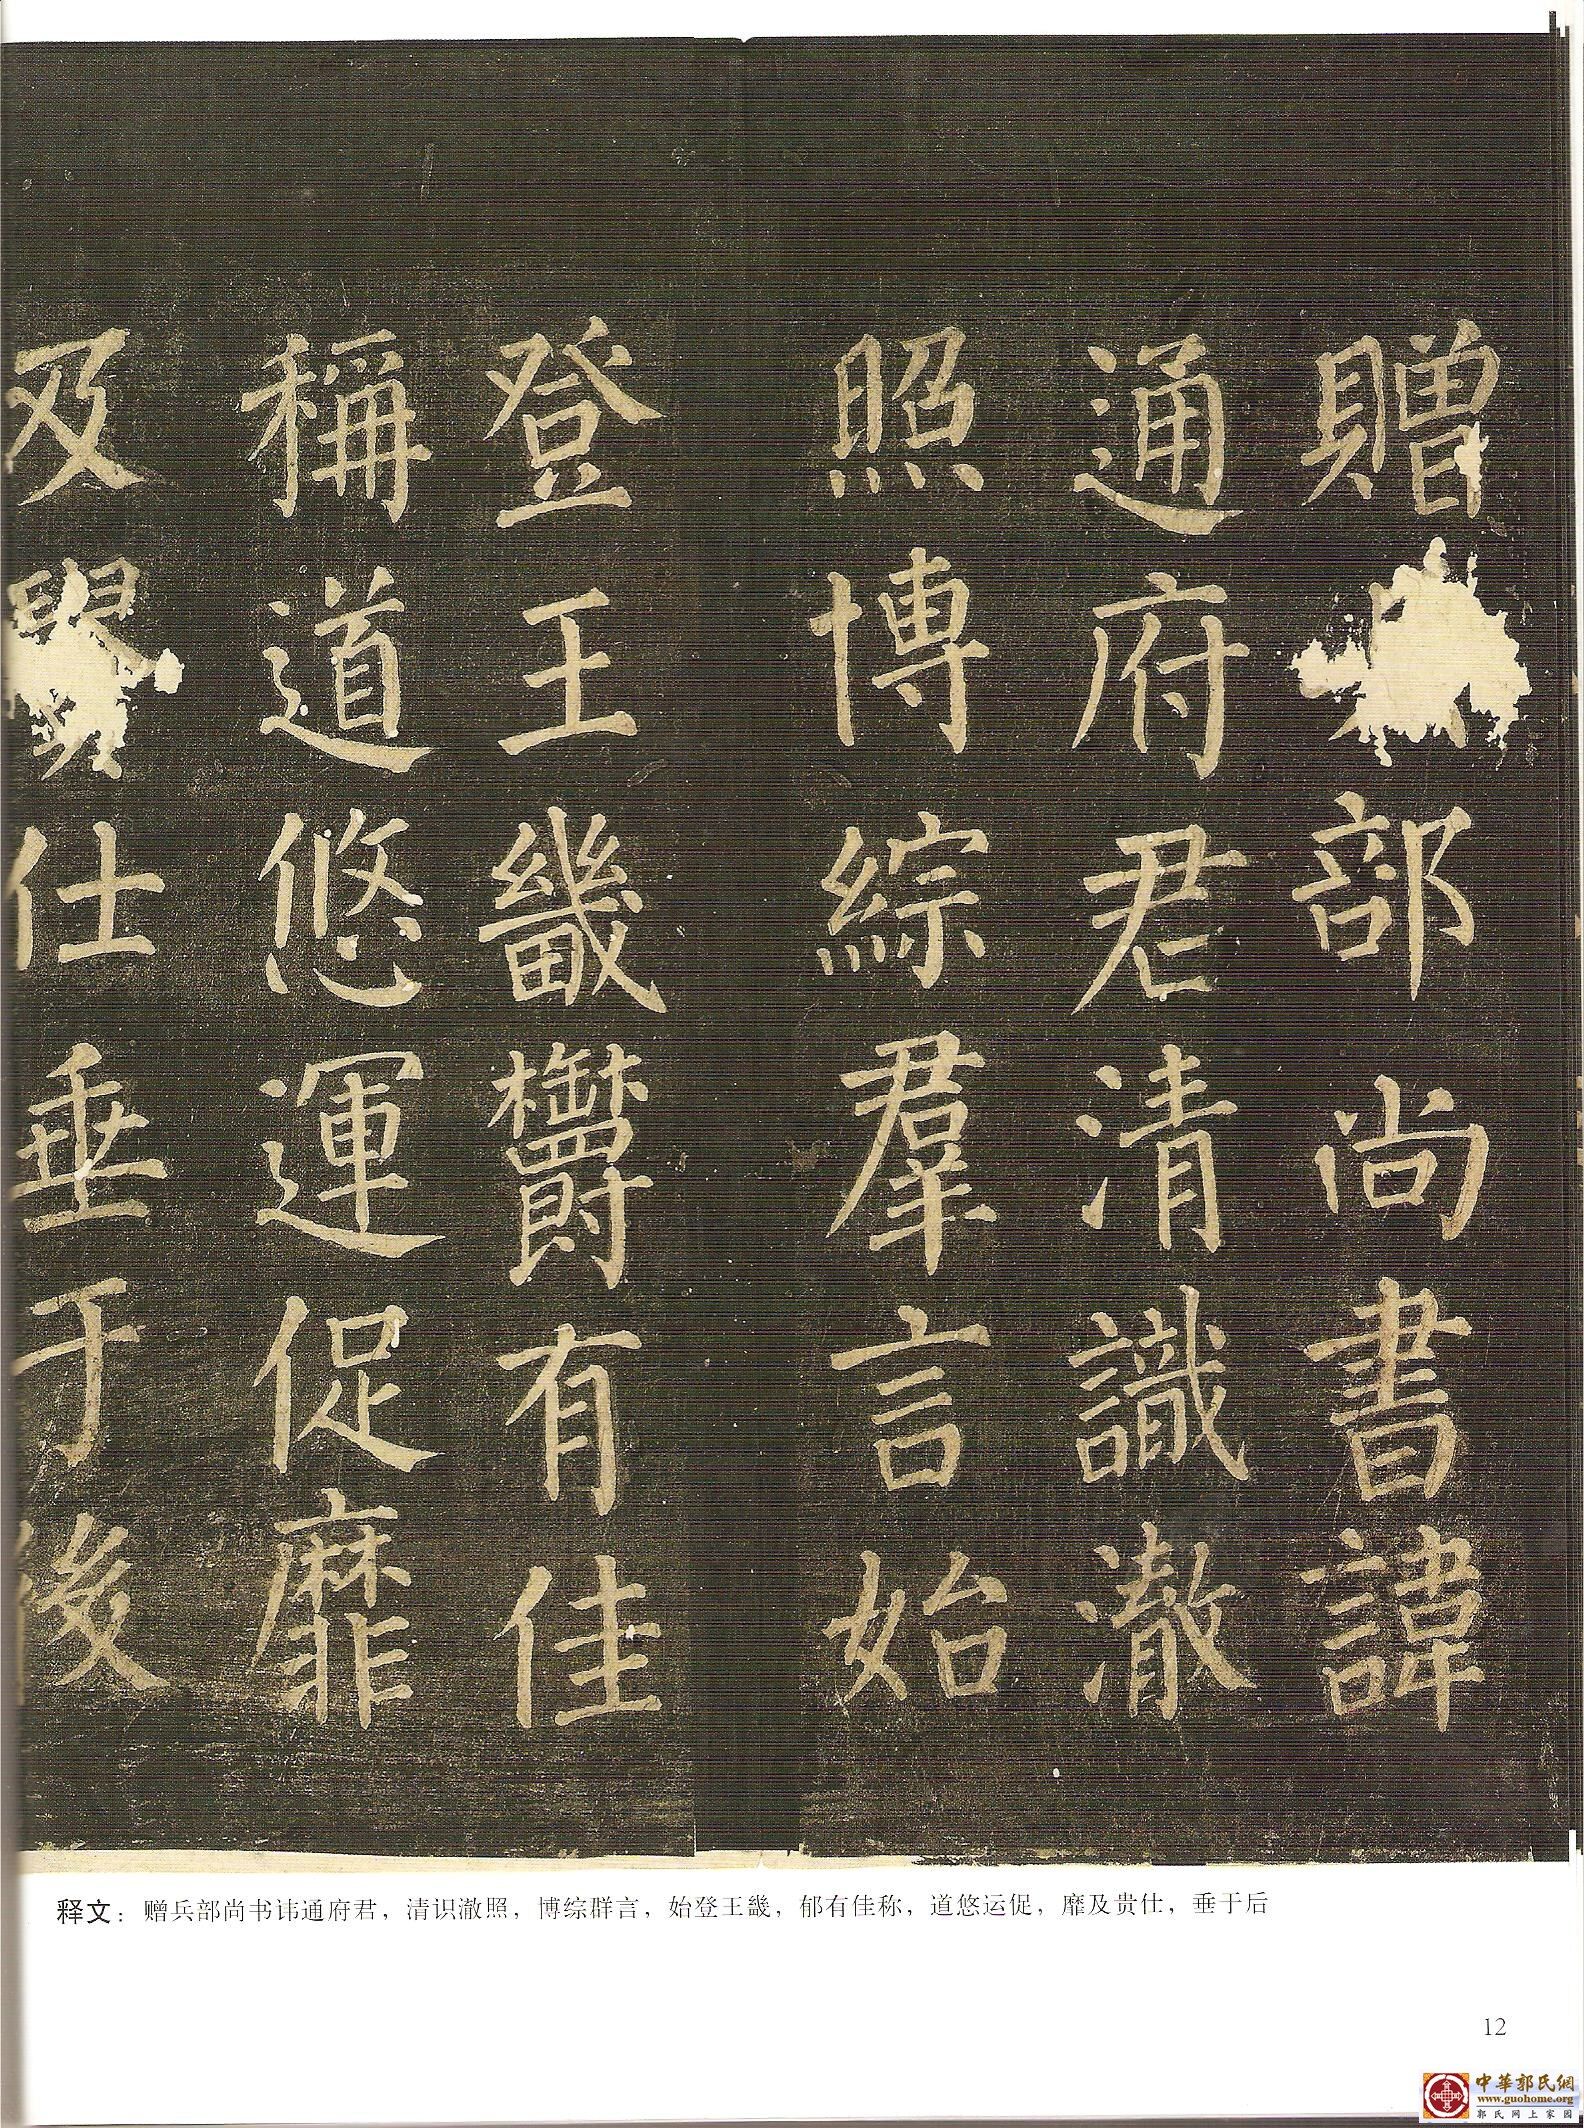 贈部尚書諱
通府君清識澈
照博綜羣言始
登王畿欝有佳
稱道悠運促靡
及貴仕垂于後
释文：赠兵部尚书讳通府君，清识澈照，博综群言，始登王畿，郁有佳称，道悠运促，靡及贵仕，垂于后
12
中華郭氏網
www.guohome.org
郭氏网上家园